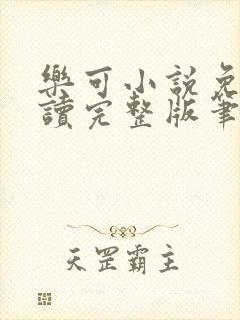 樂可小說免
讀完整版筆
天罡霸主